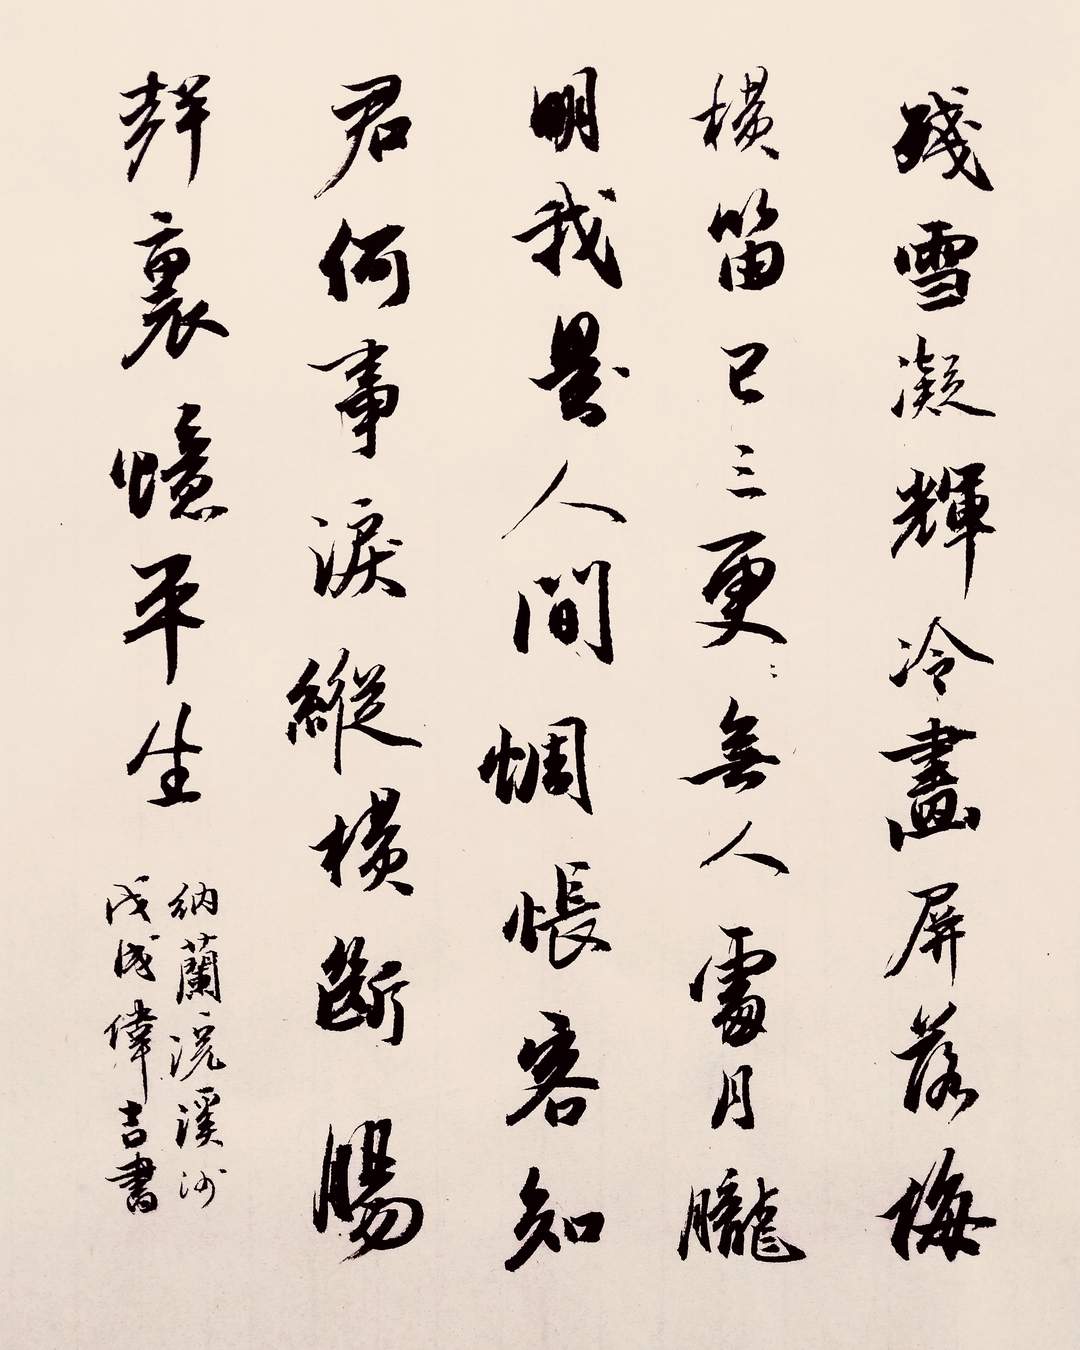 殘雪凝輝冷畫屏落梅
横笛已三更〻無人處月朧
明我是人間惆悵客知
君何事淚縱横斷腸
聲裏憶平生
納蘭浣溪沙
戊戌偉吉書